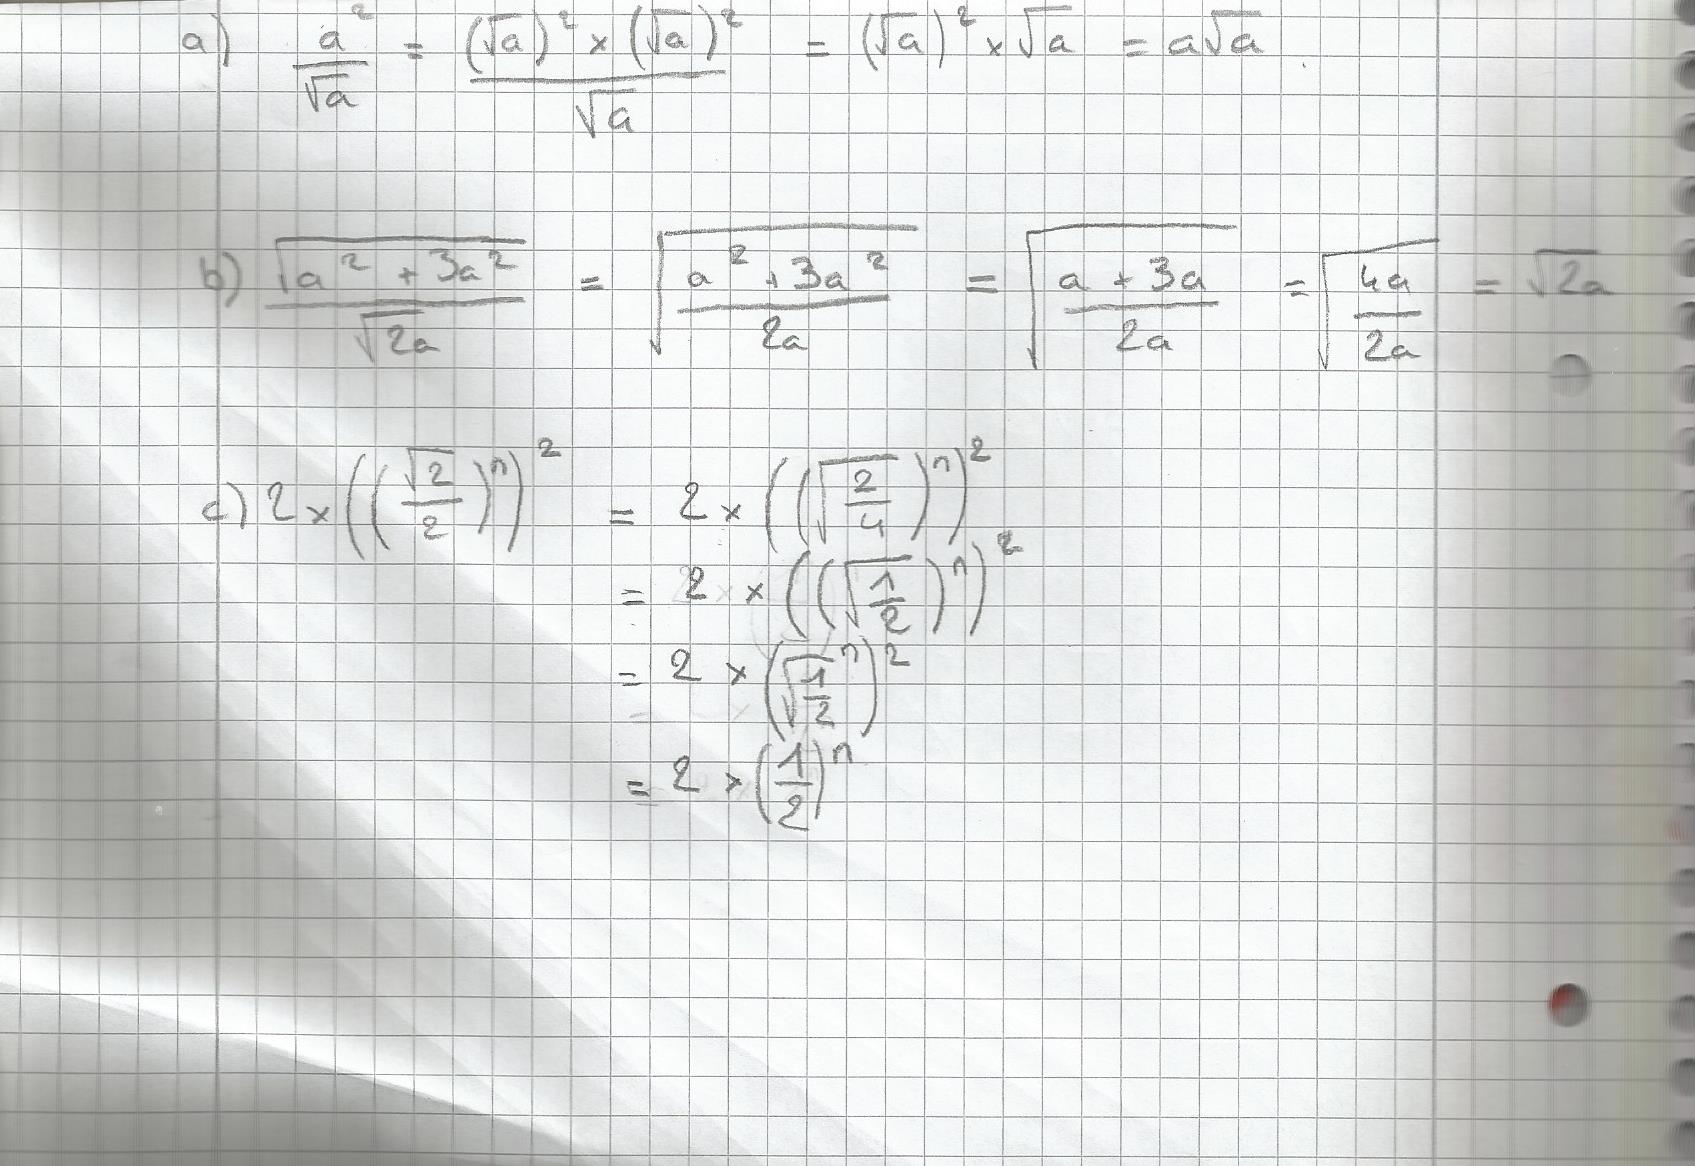 a) a²/√a = (√a)² × (√a)²/√a = (√a)² × √a = a√a
b) √(a² + 3a²)/√(2a) = √((a² + 3a²)/2a) = √((a + 3a)/2a) = √(4a/2a) = √2a
c) 2 × ((√2/2)ⁿ)² = 2 × ((√(2/4))ⁿ)²
= 2 × ((√(1/2))ⁿ)²
= 2 × (√(1/2)ⁿ)²
= 2 × (1/2)ⁿ